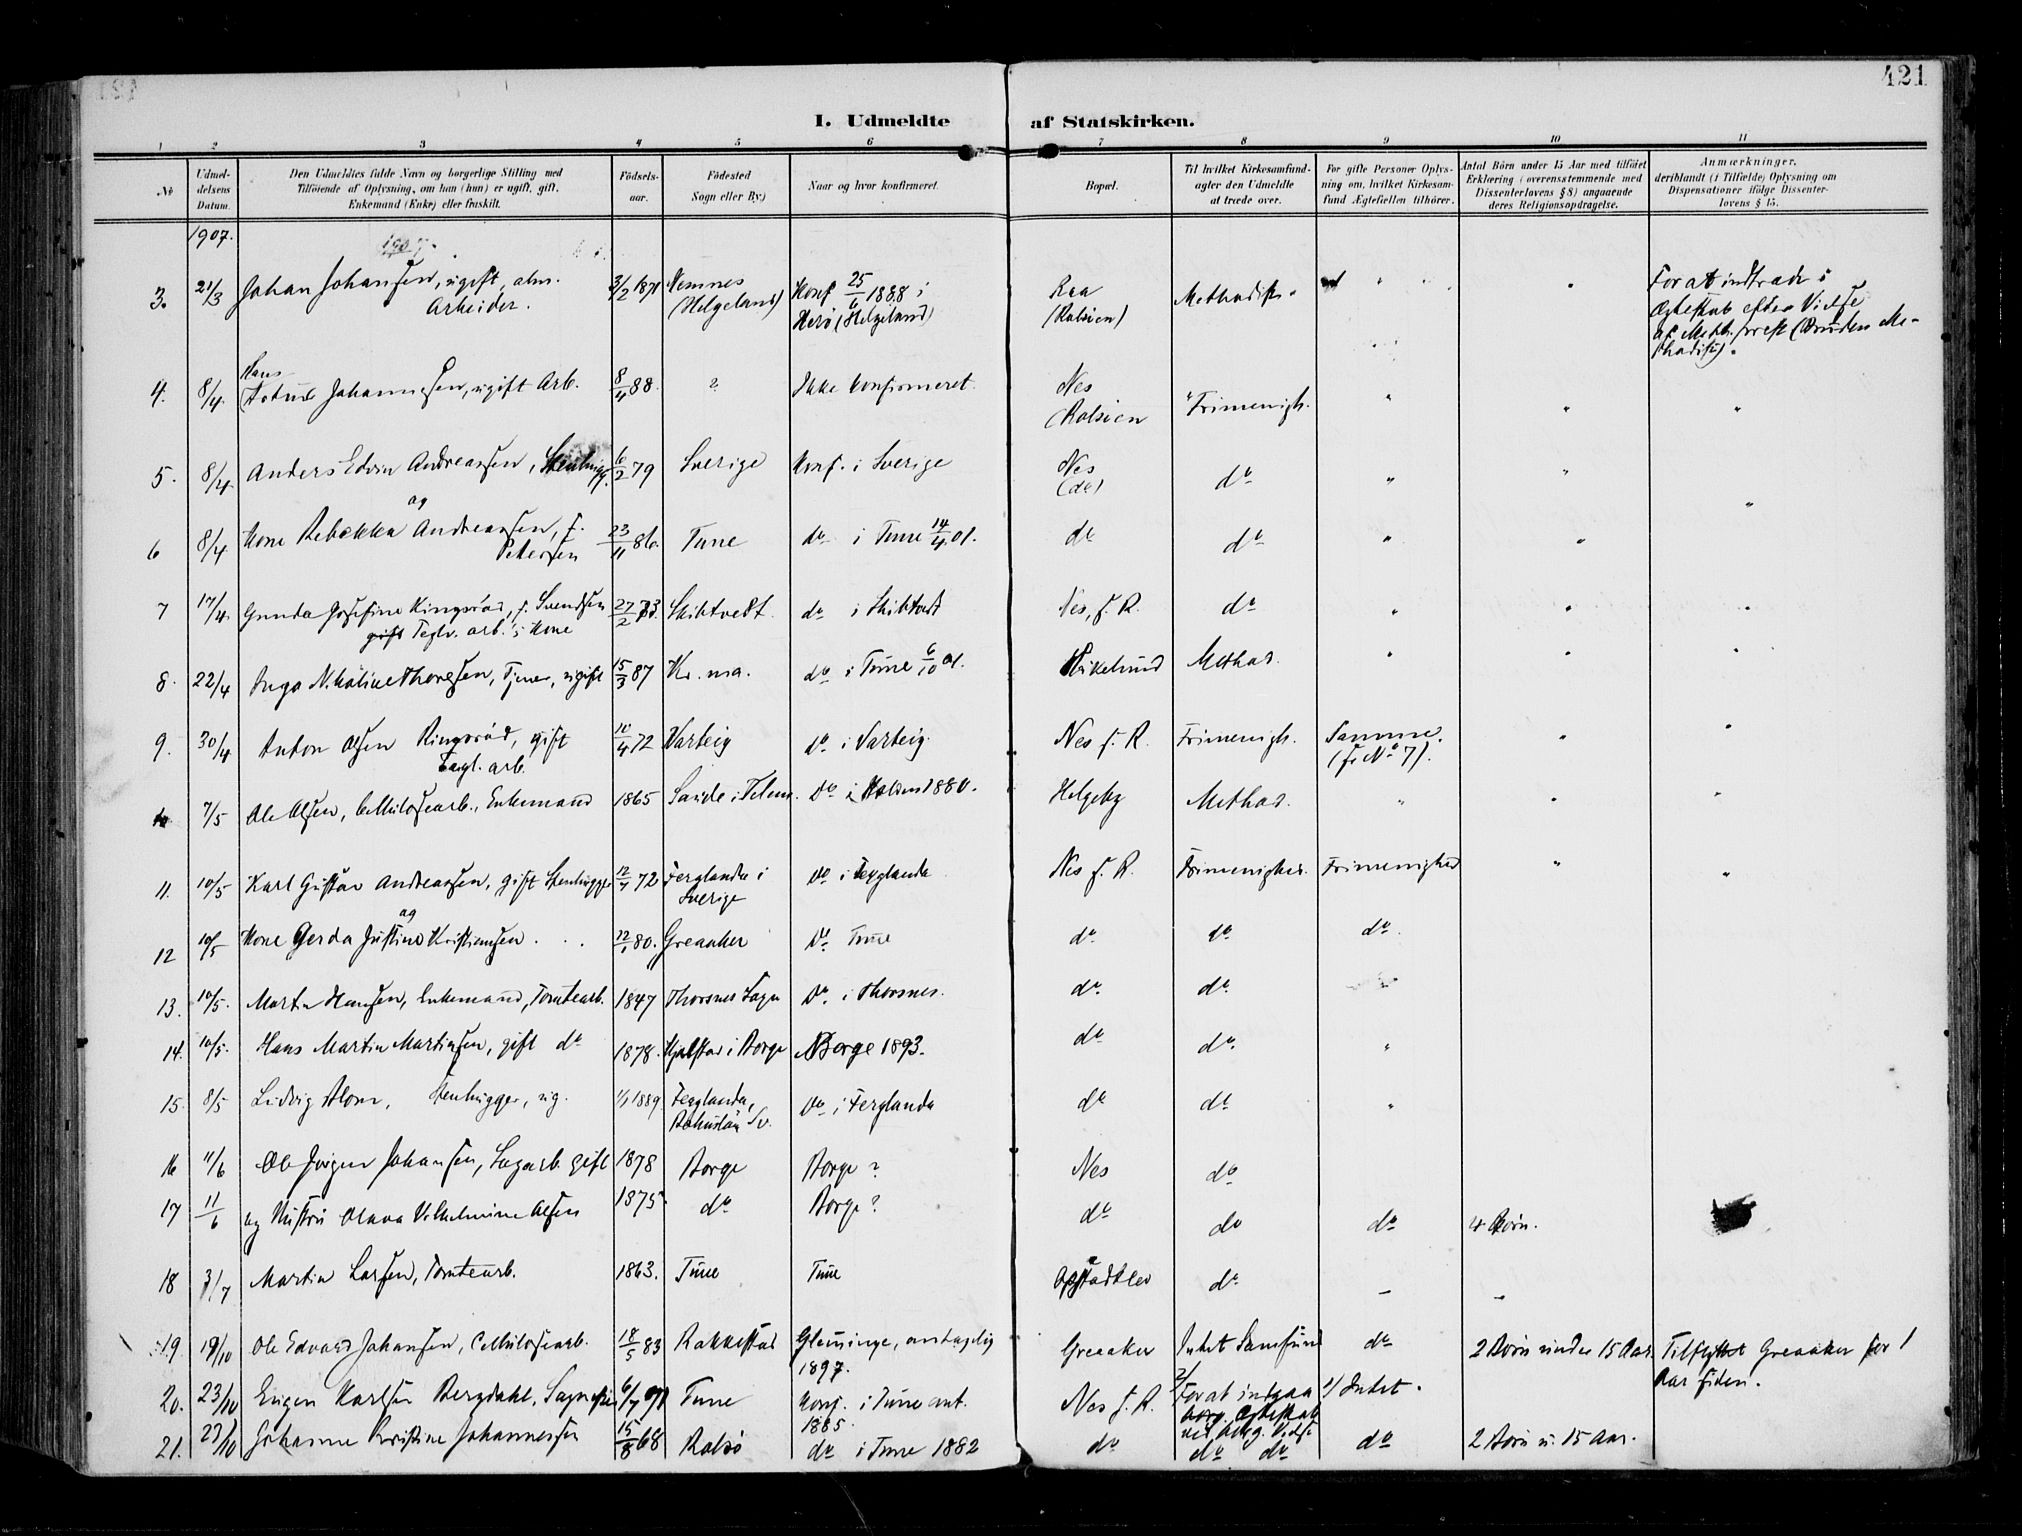 421
I. Udmeldte af Statskirken.
1 2 3 4 5 6 7 8 9 10 11
No
Udmeldelsens Datum.
Den Udmeldtes fulde Navn og borgerlige Stilling med
Tilföiende af Oplysning, om han (hun) er ugift, gift,
Enkemand (Enke) eller fraskilt.
Födselsaar.
Födested
Sogn eller By.)
Naar og hvor konfirmeret.
Bopæl.
Til hvilket Kirkesamfund-
agter den Udmeldte
at træde over.
For gifte Personer Oplys-
ning om, hvilket Kirkesam-
fund Ægtefællen tilhörer.
Antal Börn under 15 Aar med tilföiet
Erklæring (overensstemmende med
Dissenterlovens § 8) angaaende
deres Religionsopdragelse.
Anmærkninger,
deriblandt (i Tilfælde) Oplysning om
Dispensationer ifölge Dissenter-
lovens § 15.
1907.
3. 21/3 Johan Johansen, ugift, alm. Nemnes Konf 25/6 1888 i Raa Methodist " " For at indtræde i
Arbeider. (Helgeland) Herö (Helgeland) (Rolsöen) Ægteskab efter Vielse
af Meth. prest (Bruden Me-
thodist).
4. 8/4 Hans
Johannesen, ugift Arb. 8/4 88. ? Ikke konfirmeret Nes Frimenigh. " " "
(Rolsöen
5. 8/4 Anders Edvin Andreassen, Stenhugg. 6/2 79 Sverige Konf. i Sverige Nes do " "
og (do)
6 8/4 Kone Rebekka Andreassen, f. 23/11 86. Tune do i Tune 14/4 01. do do " " "
Petersen
7 17/4 Gunda Josefine Kingsröd, f. Svendsen 27/2 73 Skibtvedt. do i Skibtvedt Nes, f. R. do " "
gift Teglv. arb.'s Kone
8. 22/4 Inga Nikoline Thoresen, Tjener, ugift 15/3 87 Kr.ma. do i Tune 6/10 01. Methos. " " "
9. 30/4 Anton Olsen Ringsröd, gift 72 Varteig do i Varteig. Nes f. R. Frimenigh. Samme. " "
Tegl. arb. (fr No 7).
10 7/5 Ole Olsen, Cellulosearb., Enkemand 1865 Saude i Telem. do i 1880. Helgeby Methos. " " "
11. 10/5 Karl Gustav Andreassen, gift Stenhugger 72 Ferglanda i do i Ferglanda Nes f. R. Frimenighed. Frimenighed " "
og Sverige
12 10/5 Kone Gerda Justine Kristiansen . . . 80. Greaaker do Tune do do do
13. 10/5. Martin Hansen, Enkemand, Tomtearb. 1847 Thorsnes Sogn do i Thorsnes. do do
14. 10/5. Hans Martin Martinsen, gift do 1878. i Borge Borge 1893. do do "
15. 8/5 Ludvig Blom, Stenhugger, ug. 1/1 1889. Ferglanda, do i Ferglanda do do "
Bohuslän Sv.
16 11/6 Ole Jörgen Johansen, Sagarb. gift 1878 Borge Borge ? Nes do
17 11/6 og Hustru Olava Vilhelmine Olsen 1875. do Borge ? do do do 4 Börn.
18 3/7 Martin Larsen, Tomtearb. 1863. Tune Tune do - -
19. 19/10 Ole Edvard Johansen, Cellulosearb. 18/5 83 Rakkestad Glemminge, antagelig Greaaker Intet Samfund do 2 Börn under 15 Aar. Tilflyttet Greaaker for 1
1897. Aar siden.
20. 23/10 Eugen Karlsen Bergdahl, Tune Konf. i Tune ant. Nes f. R. For at indgaa Intet.
1885. borg. Ægteskab
21. 23/10 Johanne Kristine Johannessen 15/8 68 Rolsö do i Tune 1882 do do do do 2 Börn u. 15 Aar.